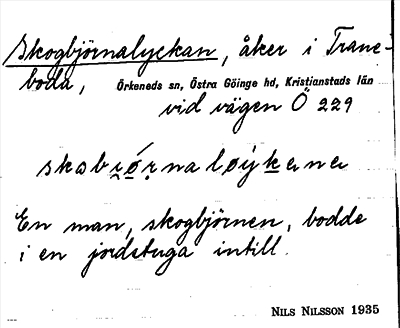 Skogbjörnalyckan, åker i Trane-
boda, Örkeneds sn, Östra Göinge hd, Kristianstads län
vid vägen Ö 229
skobrǿrnaløykene
En man, skogbjörnen, bodde
i en jordstuga intill.
NILS NILSSON 1935